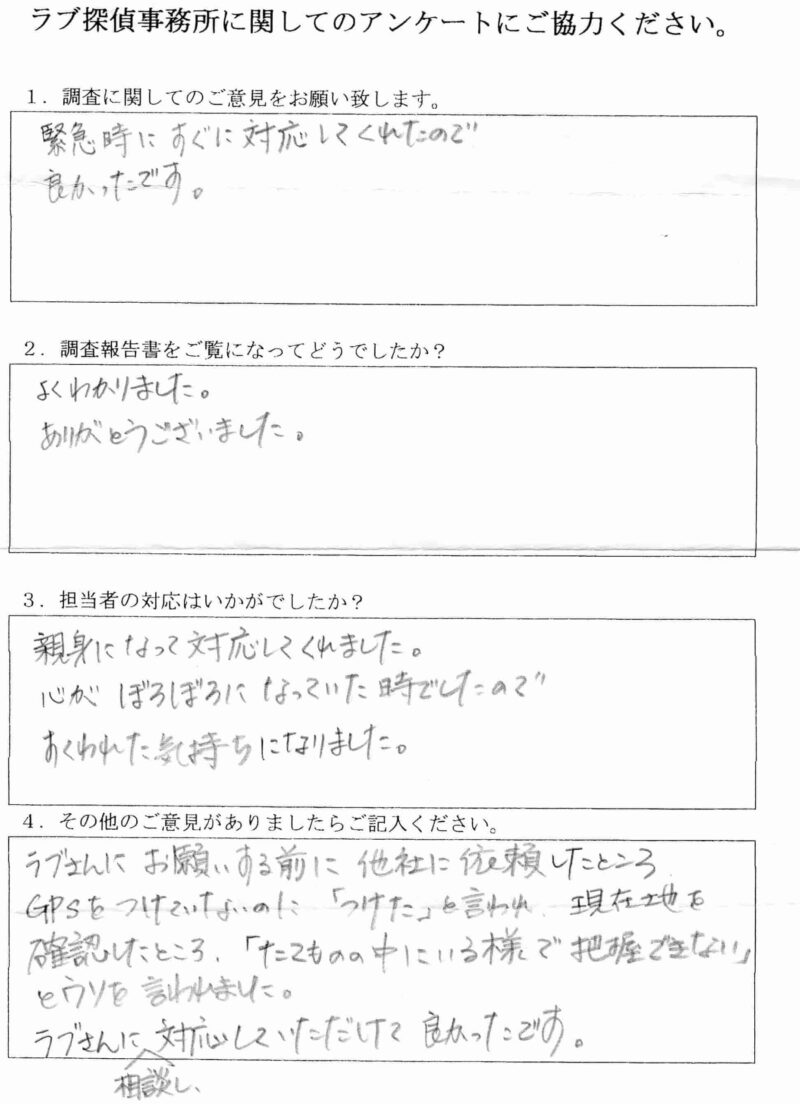 ラブ探偵事務所に関してのアンケートにご協力ください。
1．調査に関してのご意見をお願い致します。
緊急時にすぐに対応してくれたので
良かったです。
2．調査報告書をご覧になってどうでしたか？
よくわかりました。
ありがとうございました。
3．担当者の対応はいかがでしたか？
親身になって対応してくれました。
心がぼろぼろになっていた時でしたので
すくわれた気持ちになりました。
4．その他のご意見がありましたらご記入ください。
ラブさんにお願いする前に他社に依頼したところ
GPSをつけていないのに「つけた」と言われ、現在地を
確認したところ、「たてものの中にいる様で把握できない」
とウソを言われました。
ラブさんに対応していただけて良かったです。
相談し、